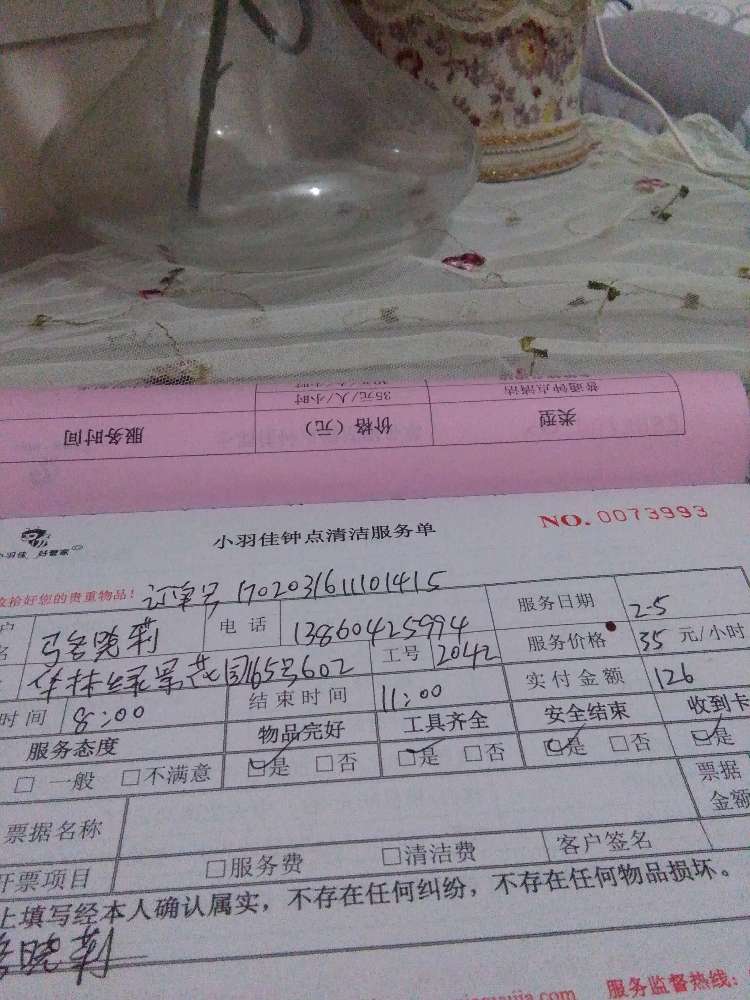 普通钟点清洁 35元/人/小时
类型 价格（元） 服务时间
小羽佳 好管家 小羽佳钟点清洁服务单 NO. 0073993
收拾好您的贵重物品！ 订单号 1702031611101415
户名 电话 13860425994 服务日期 2-5
165号602 工号 2042 服务价格 35 元/小时
时间 8:00 结束时间 11:00 实付金额 126
服务态度 物品完好 工具齐全 安全结束 收到卡
□ 一般 □不满意 □是 □否 □是 □否 □是 □否 □是
票据名称 票据金额
开票项目 □服务费 □清洁费 客户签名
上填写经本人确认属实，不存在任何纠纷，不存在任何物品损坏。
服务监督热线：